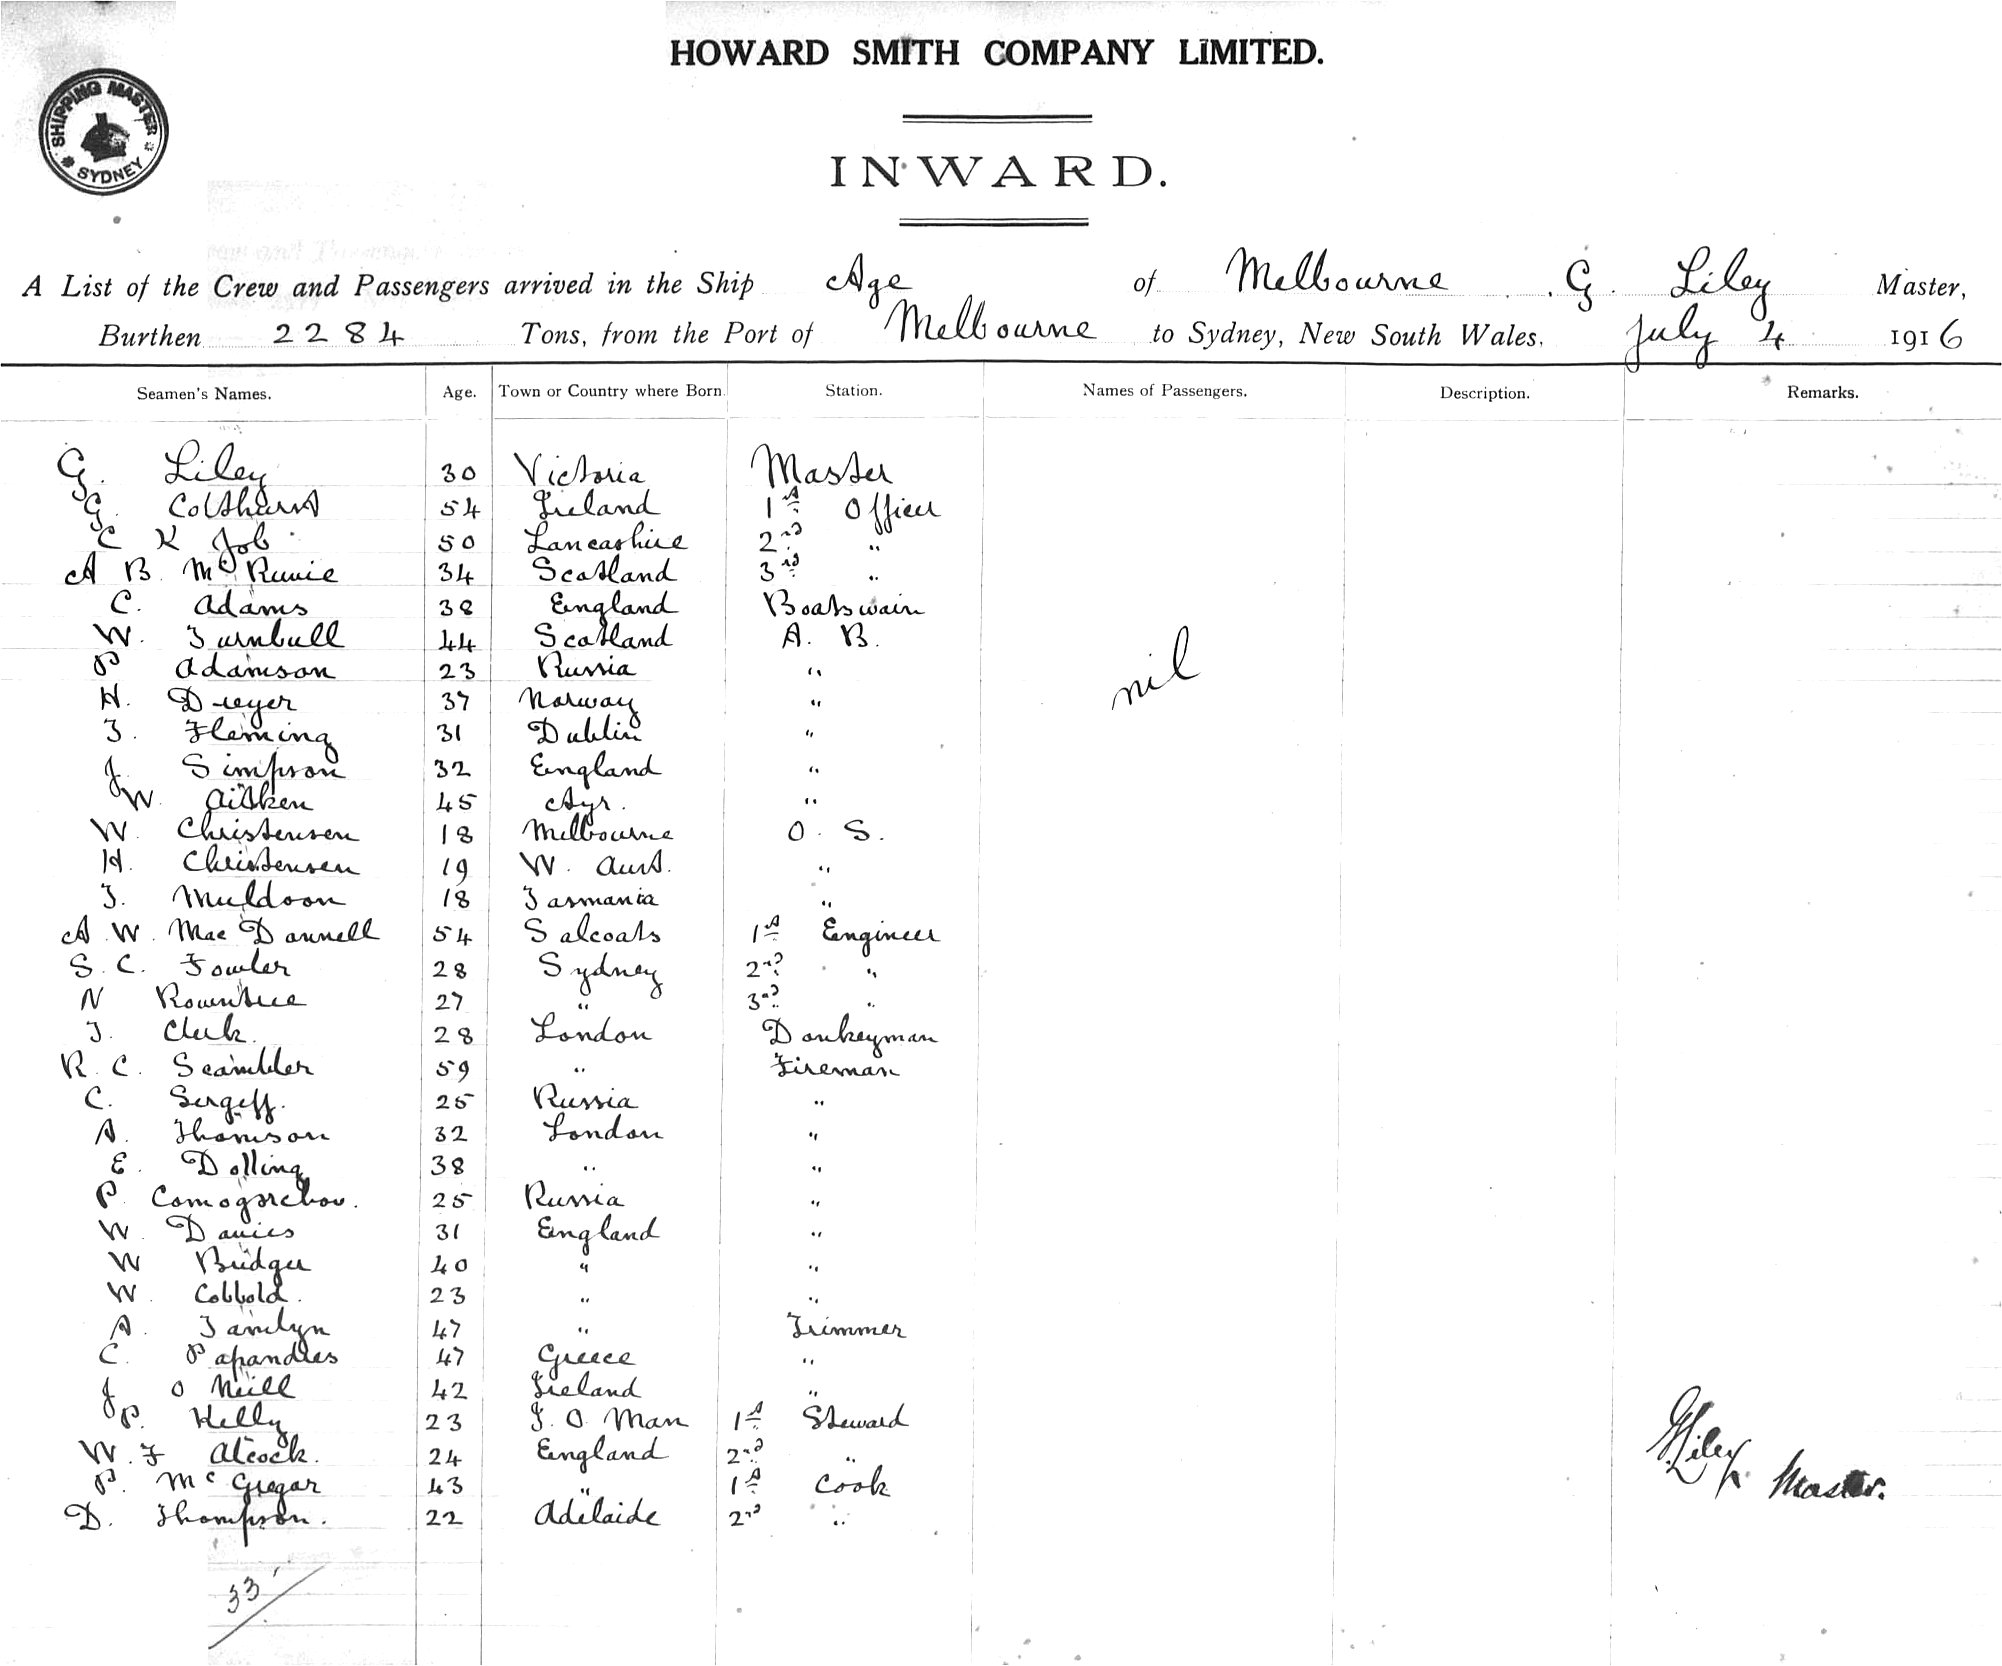 HOWARD SMITH COMPANY LIMITED.
SHIPPING MASTER
SYDNEY
INWARD.
A List of the Crew and Passengers arrived in the Ship Age of Melbourne G. Liley Master,
Burthen 2284 Tons, from the Port of Melbourne to Sydney, New South Wales. July 4 1916
Seamen's Names. Age. Town or Country where Born. Station. Names of Passengers. Description. Remarks.
G. Liley 30 Victoria Master
G. Colthurst 54 Ireland 1st Officer
C K Job 50 Lancashire 2nd "
A B. McRunie 34 Scotland 3rd "
C. Adams 38 England Boatswain
W. Turnbull 44 Scotland A. B.
P Adamson 23 Russia "
nil
H. Dreyer 37 Norway "
T. Fleming 31 Dublin "
J. Simpson 32 England "
W. Aitken 45 Ayr. "
W. Christensen 18 Melbourne O. S.
H. Christensen 19 W. Aust. "
T. Muldoon 18 Tasmania "
A. W. Mac Donnell 54 Salcoats 1st Engineer
S. C. Fowler 28 Sydney 2nd "
N Rowntree 27 " 3rd "
T. Clerk. 28 London Donkeyman
R. C. Scambler 59 " Fireman
C. Sergeff. 25 Russia "
A. Thomson 32 London "
E. Dolling 38 " "
P. Comogorchov. 25 Russia "
W. Davies 31 England "
W Bridger 40 " "
W. Cobbold. 23 " "
A. Tamlyn 47 " Trimmer
C. Papandres 47 Greece "
J O Neill 42 Ireland "
P. Kelly 23 I. O. Man 1st Steward
W. F Alcock. 24 England 2nd "
P. McGregor 43 " 1st Cook
D. Thompson. 22 Adelaide 2nd "
G Liley Master.
33